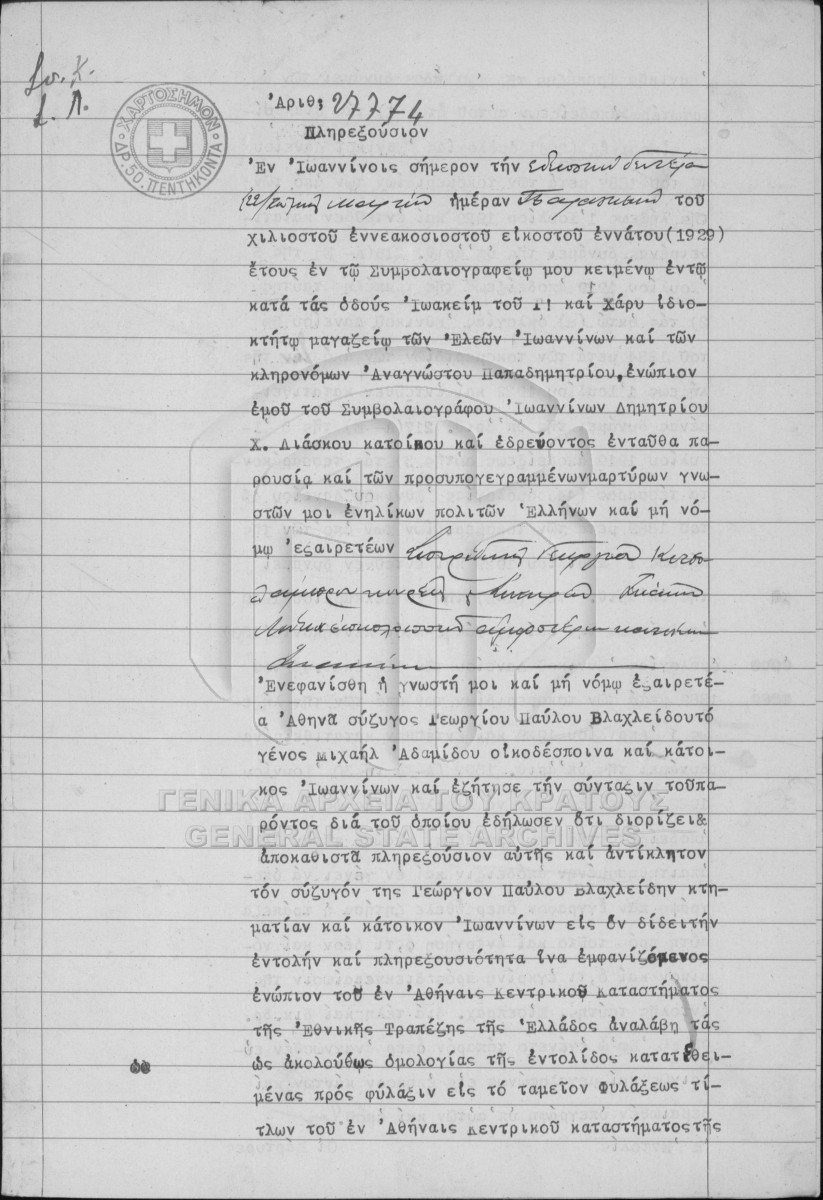 Ἀριθ; 27774
Πληρεξούσιον
ΧΑΡΤΟΣΗΜΟΝ
ΔΡ. 50. ΠΕΝΤΗΚΟΝΤΑ
Ἐν Ἰωαννίνοις σήμερον τήν εἰκοστήν δευτέραν
(22) Μαρτίου ἡμέραν Παρασκευήν τοῦ
χιλιοστοῦ ἐννεακοσιοστοῦ εἰκοστοῦ ἐννάτου(1929)
ἔτους ἐν τῷ Συμβολαιογραφείῳ μου κειμένῳ ἐντῷ
κατά τάς ὁδούς Ἰωακείμ τοῦ Γ! καί Χάρυ ἰδιο-
κτήτῳ μαγαζείῳ τῶν Ἐλεῶν Ἰωαννίνων καί τῶν
κληρονόμων Ἀναγνώστου Παπαδημητρίου,ἐνώπιον
ἐμοῦ τοῦ Συμβολαιογράφου Ἰωαννίνων Δημητρίου
Χ. Λιάσκου κατοίκου καί ἑδρεύοντος ἐνταῦθα πα-
ρουσίᾳ καί τῶν προσυπογεγραμμένωνμαρτύρων γνω-
στῶν μοι ἐνηλίκων πολιτῶν Ἑλλήνων καί μή νό-
μῳ ἐξαιρετέων Γεωργίου
ἀμφοτέρων κατοίκων
Ἰωαννίνων
Ἐνεφανίσθη ἡ γνωστή μοι καί μή νόμῳ ἐξαιρετέ-
α Ἀθηνᾶ σύζυγος Γεωργίου Παύλου Βλαχλείδουτό
γένος Μιχαήλ Ἀδαμίδου οἰκοδέσποινα καί κάτοι-
κος Ἰωαννίνων καί ἐζήτησε τήν σύνταξιν τοῦπα-
ρόντος διά τοῦ ὁποίου ἐδήλωσεν ὅτι διορίζει&
ἀποκαθιστᾶ πληρεξούσιον αὐτῆς καί ἀντίκλητον
τόν σύζυγόν της Γεώργιον Παύλου Βλαχλείδην κτη-
ματίαν καί κάτοικον Ἰωαννίνων εἰς ὅν δίδειτήν
ἐντολήν καί πληρεξουσιότητα ἵνα ἐμφανιζόμενος
ἐνώπιον τοῦ ἐν Ἀθήναις Κεντρικοῦ Καταστήματος
τῆς Ἐθνικῆς Τραπέζης τῆς Ἑλλάδος ἀναλάβῃ τάς
ὡς ἀκολούθως ὁμολογίας τῆς ἐντολίδος κατατεθει-
μένας πρός φύλαξιν εἰς τό ταμεῖον Φυλάξεως τί-
τλων τοῦ ἐν Ἀθήναις Κεντρικοῦ καταστήματοςτῆς
ΓΕΝΙΚΑ ΑΡΧΕΙΑ ΤΟΥ ΚΡΑΤΟΥΣ
GENERAL STATE ARCHIVES